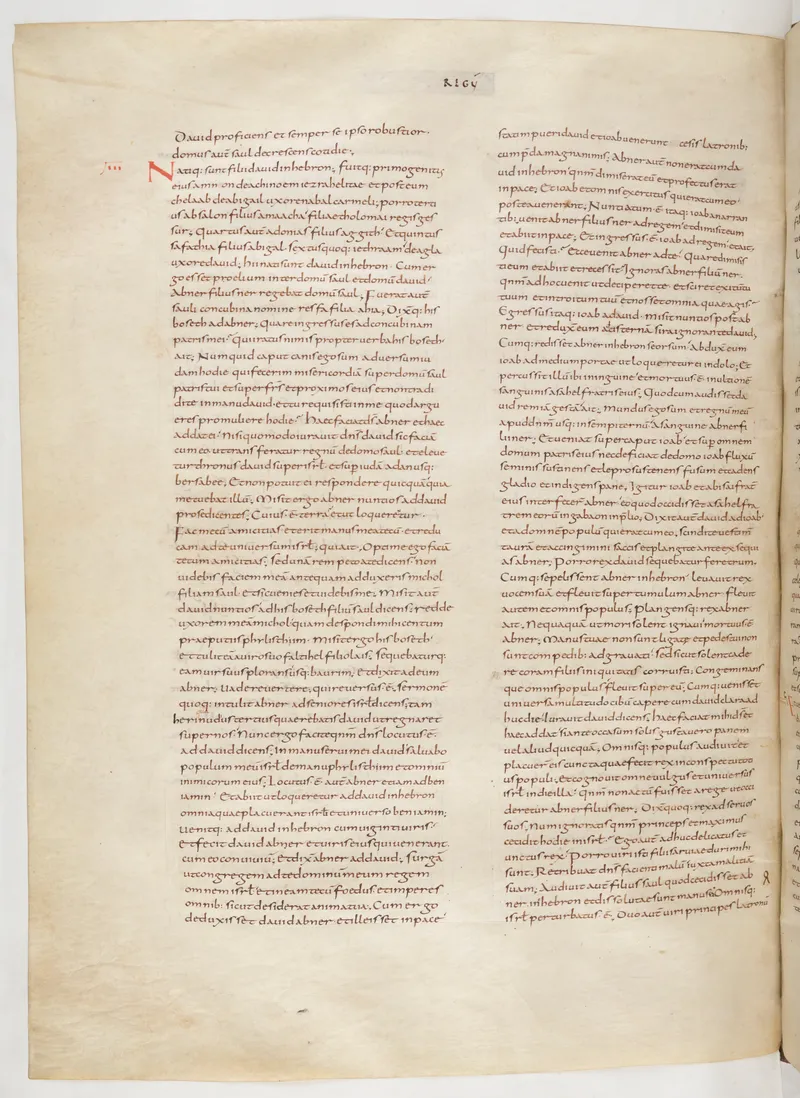 REGŪ
Dauid proficiens et semper se ipso robustior·
domus aut̄ saul decrescens cotidie·,
IIII
Natiq: sunt filii dauid in hebron; fuitq: primogenitus
eius amnon de achinoem iezrahelitae· et post eum
chelaab de abigail uxore nabal carmeli; porro terti
us absalon filius maacha filiae tholomai regis ges
sur; quartus aut̄ adonias filius aggith· Et quintus
safathia filius abigal· sextusquoq: iethraam de agla
uxore dauid; hii nati sunt dauid in hebron· Cum er
go esset proelium inter domū saul et domū dauid·
Abner filius ner regebat domū saul; Fuerat aut̄
sauli concubina nomine respha filia ahia; Dixq: his
boseth ad abner; quare ingressus es ad concubinam
patris mei· qui iratus nimis propter uerba hisboseth
ait; Numquid caput canis ego sum aduersum iu
dam hodie· qui fecerim misericordiā super domū saul
patris tui et super frs̄ et proximos eius et non tradi
di te in manu dauid· et tu requisisti in me quod argu
eres pro muliere hodie· Haec faciat dſ abner et haec
addat ei· Nisi quomodo iurauit dnſ dauid sic faciā
cum eo ut transferatur regnū de domo saul· et eleue
tur thronus dauid super isrł· et sup iudā a dan usq:
bersabee; Et non potuit ei respondere quicquā quia
metuebat illū; Misit ergo abner nuntios ad dauid
pro se dicentes; Cuius ē terra· et ut loqueretur·
Fac mecū amicitias et erit manus mea tecū· et redu
cam ad te uniuersum isrł; qui ait; Optime ego faciā
tecum amicitias; sed unā rem peto a te dicens· non
uidebis faciem meā antequam adduxeris michol
filiam saul· et sic uenies et uidebis me; Misit aut̄
dauid nuntios ad hisboseth filiū saul dicens; redde
uxorem meā michol quam despondi mihi centum
praeputiis philisthiim· Misit ergo hisboseth·
et tulit eā a uiro suo faltihel filio lais; sequebaturq:
eam uir suus plorans usq: baurim; et dixit ad eum
abner; uade reuertere; qui reuersus ē; sermonē
quoq: intulit abner ad seniores isrł dicens; tam
heri nudus tertius quaerebatis dauid ut regnaret
super uos· Nunc ergo facite qnm̄ dnſ locutus ē·
ad dauid dicens; In manu serui mei dauid saluabo
populum meū isrł de manu philisthiim et omniū
inimicorum eius; Locutus ē aut̄ abner etiam ad ben
iamin· Et abiit ut loqueretur ad dauid in hebron
omnia quae placuerant isrł et uniuerso beniamin;
uenitq: ad dauid in hebron cum uiginti uiris·
et fecit dauid abner et uiris eius qui uenerant
cum eo conuiuiū; Et dix̄ abner ad dauid; surgā
ut congregem ad te dominum meum regem
omnem isrł· et ineam tecū foedus et imperes
omnib: sicut desiderat anima tua; Cum ergo
deduxisset dauid abner et ille isset in pace·
statim pueri dauid et ioab uenerunt caesis latronib:
cum p̄da magna nimis; Abner aut̄ non erat cum da
uid in hebron qnm̄ dimiserat eū et profectus erat
in pace; Et ioab et omnis exercitus qui erat cum eo·
postea uenerant; Nuntiatum ē itaq: ioab a narran
tib: uenit abner filius ner ad regem et dimisit eum
et abiit in pace; Et ingressus ē ioab ad regem et ait;
Quid fecisti· Ecce uenit abner ad te· Quare dimisis
ti eum et abiit et recessit· Ignoras abner filiū ner·
qnm̄ ad hoc uenit ut deciperet te· et sciret exitū
tuum et introitum tuū et nosset omnia quae agis·
Egressus itaq: ioab a dauid· misit nuntios post ab
ner et reduxit eum a cisterna sira ignorante dauid;
Cumq: redisset abner in hebron seorsum abduxit eum
ioab ad medium portae ut loqueretur ei in dolo; Et
percussit illū ibi in inguine et mortuus ē in ultionē
sanguinis asahel fratris eius; Quod cum audisset da
uid rem iā gestā ait; Mundus ego sum et regnū meū
apud dnm̄ usq: in sempiternū a sanguine abner fi
lii ner; Et ueniat super caput ioab et sup omnem
domum patris eius nec deficiat de domo ioab fluxū
seminis sustinens et leprosus tenens fusum et cadens
gladio et indigens pane; Igitur ioab et abisai frat̄
eius interfecer̄ abner· eo quod occidisset asahel fra
trem eorū in gabaon in p̄lio; Dixit aut̄ dauid ad ioab·
et ad omnē populū qui erat cum eo; scindite uestim̄
ta uestra et accingimini saccis et plangite ante exsequi
as abner; Porro rex dauid sequebatur feretrum·
Cumq: sepelissent abner in hebron· leuauit rex
uocem suā et fleuit super tumulum abner· fleuit
autem et omnis populus; plangensq: rex abner
ait; Nequaquā ut mori solent ignaui mortuus ē
abner; Manus tuae non sunt ligatae et pedes tui non
sunt compedib: adgrauati· sed sicut solent cade
re coram filiis iniquitatis corruisti; Congeminans
que omnis populus fleuit super eū; Cumq: uenisset
uniuersa multitudo cibū capere cum dauid clara ad
huc die· Iurauit dauid dicens; haec faciat mihi dſ et
haec addat si ante occasum solis gustauero panem
uel aliud quicquā; Omnisq: populus audiuit et
placuer̄ eis cuncta quae fecit rex in conspectu toti
us populi; et cognouit omne uulgus et uniuersus
isrł in die illa· qnm̄ non actū fuisset a rege ut occi
deretur abner filius ner; Dixq: quoq: rex ad seruos
suos; Num ignoratis qnm̄ princeps et maximus
cecidit hodie in isrł· Ego aut̄ adhuc delicatus et
unctus rex· Porro uiri isti filii saruiae duri mihi
sunt; Retribuat dnſ facienti malū iuxta malitiā
suam; Audiuit aut̄ filius saul quod cecidisset ab
ner in hebron et dissolutae sunt manus eius Omnisq:
isrł perturbatus ē; Duo aut̄ uiri principes latronū